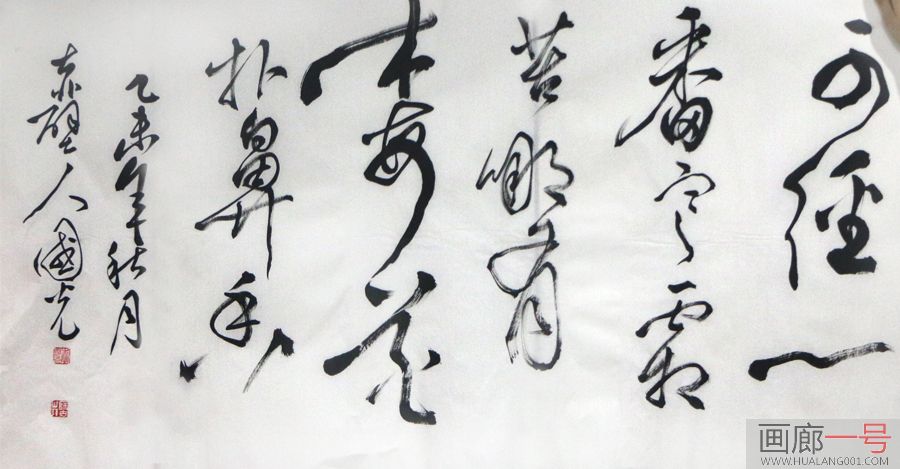 不經一
番寒霜
苦哪有
梅花
扑鼻香
乙未年秋月
赤壁人國光
画廊一号
WWW.HUALANG001.COM